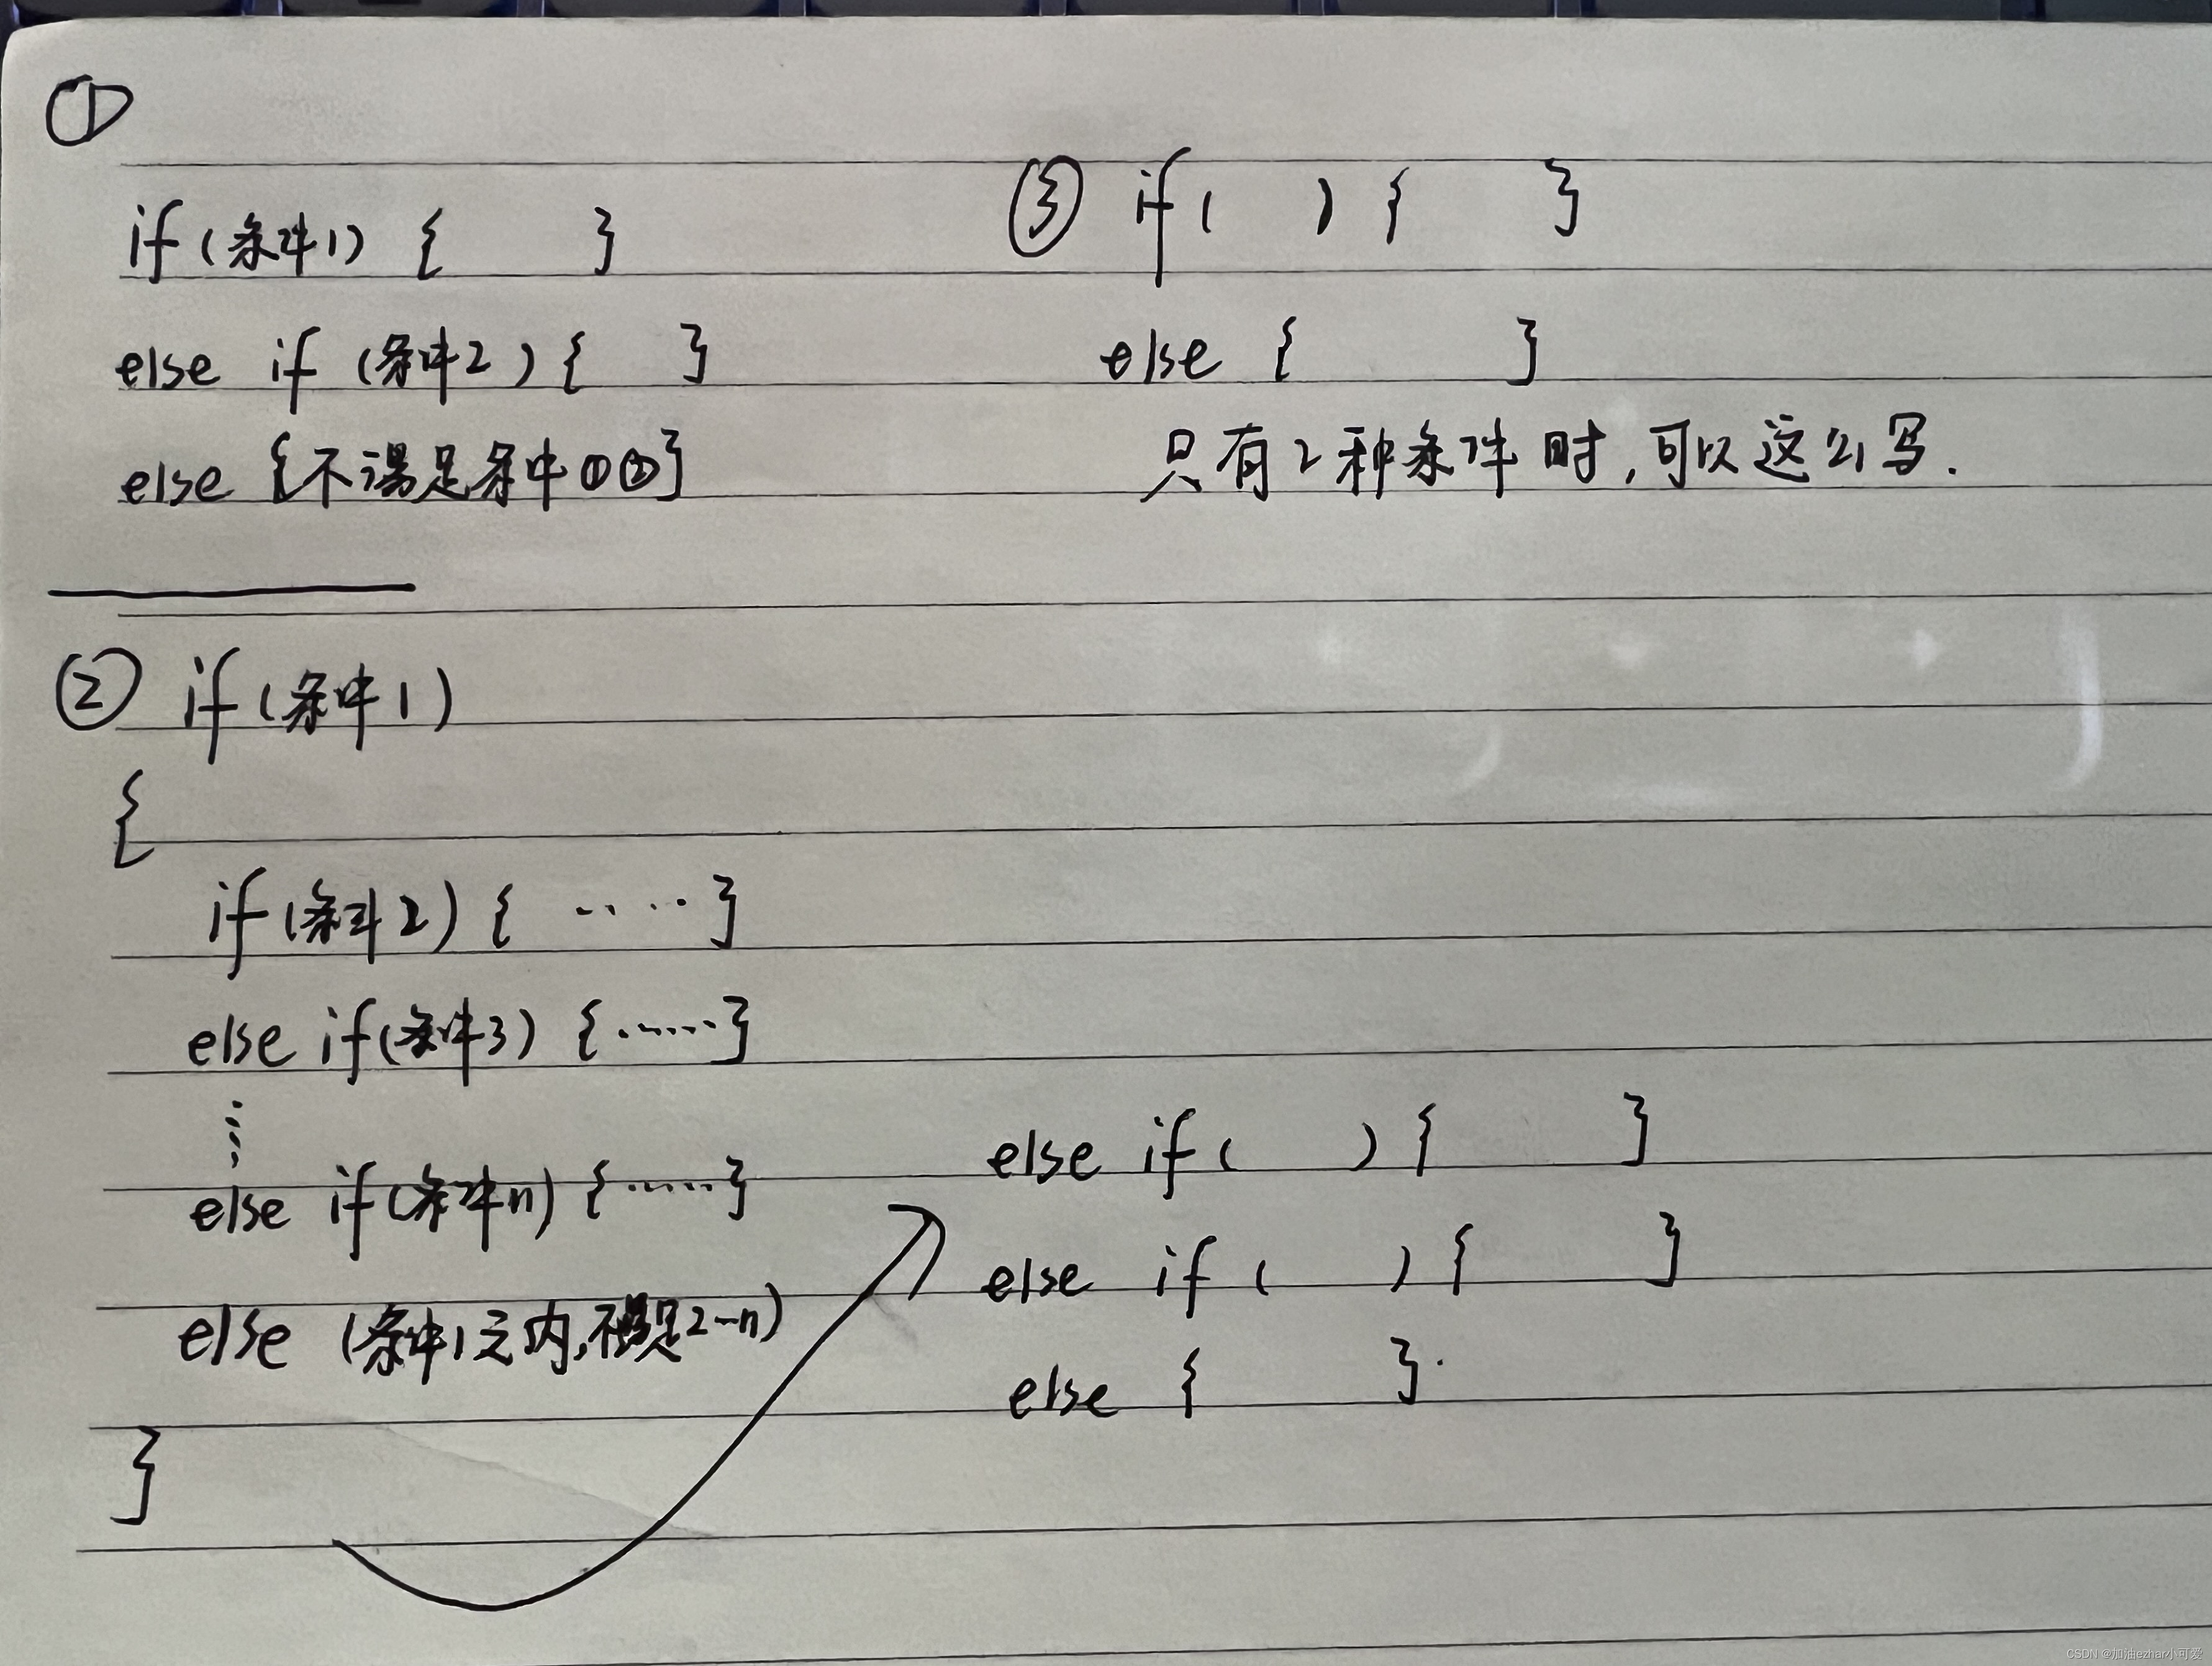 ①
if (条件1) { }
else if (条件2) { }
else {不满足条件①②}
② if (条件1)
{
if (条件2) { ····· }
else if (条件3) {······}
⋮
else if (条件n) {······}
else (条件1之内,不满足2-n)
}
else if ( ) { }
else if ( ) { }
else { }.
③ if ( ) { }
else { }
只有2种条件时,可以这么写.
CSDN @加油ezhar小可爱